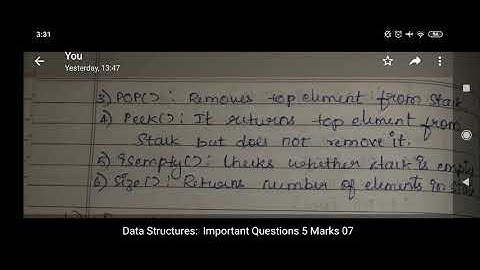 3:31
52
You
Yesterday, 13:47
3) POP(): Removes top element from Stack
4) Peek(): It returns top element from
Stack but does not remove it.
5) Isempty(): Checks whether stack is empty
6) Size(): Returns number of elements in
Data Structures: Important Questions 5 Marks 07